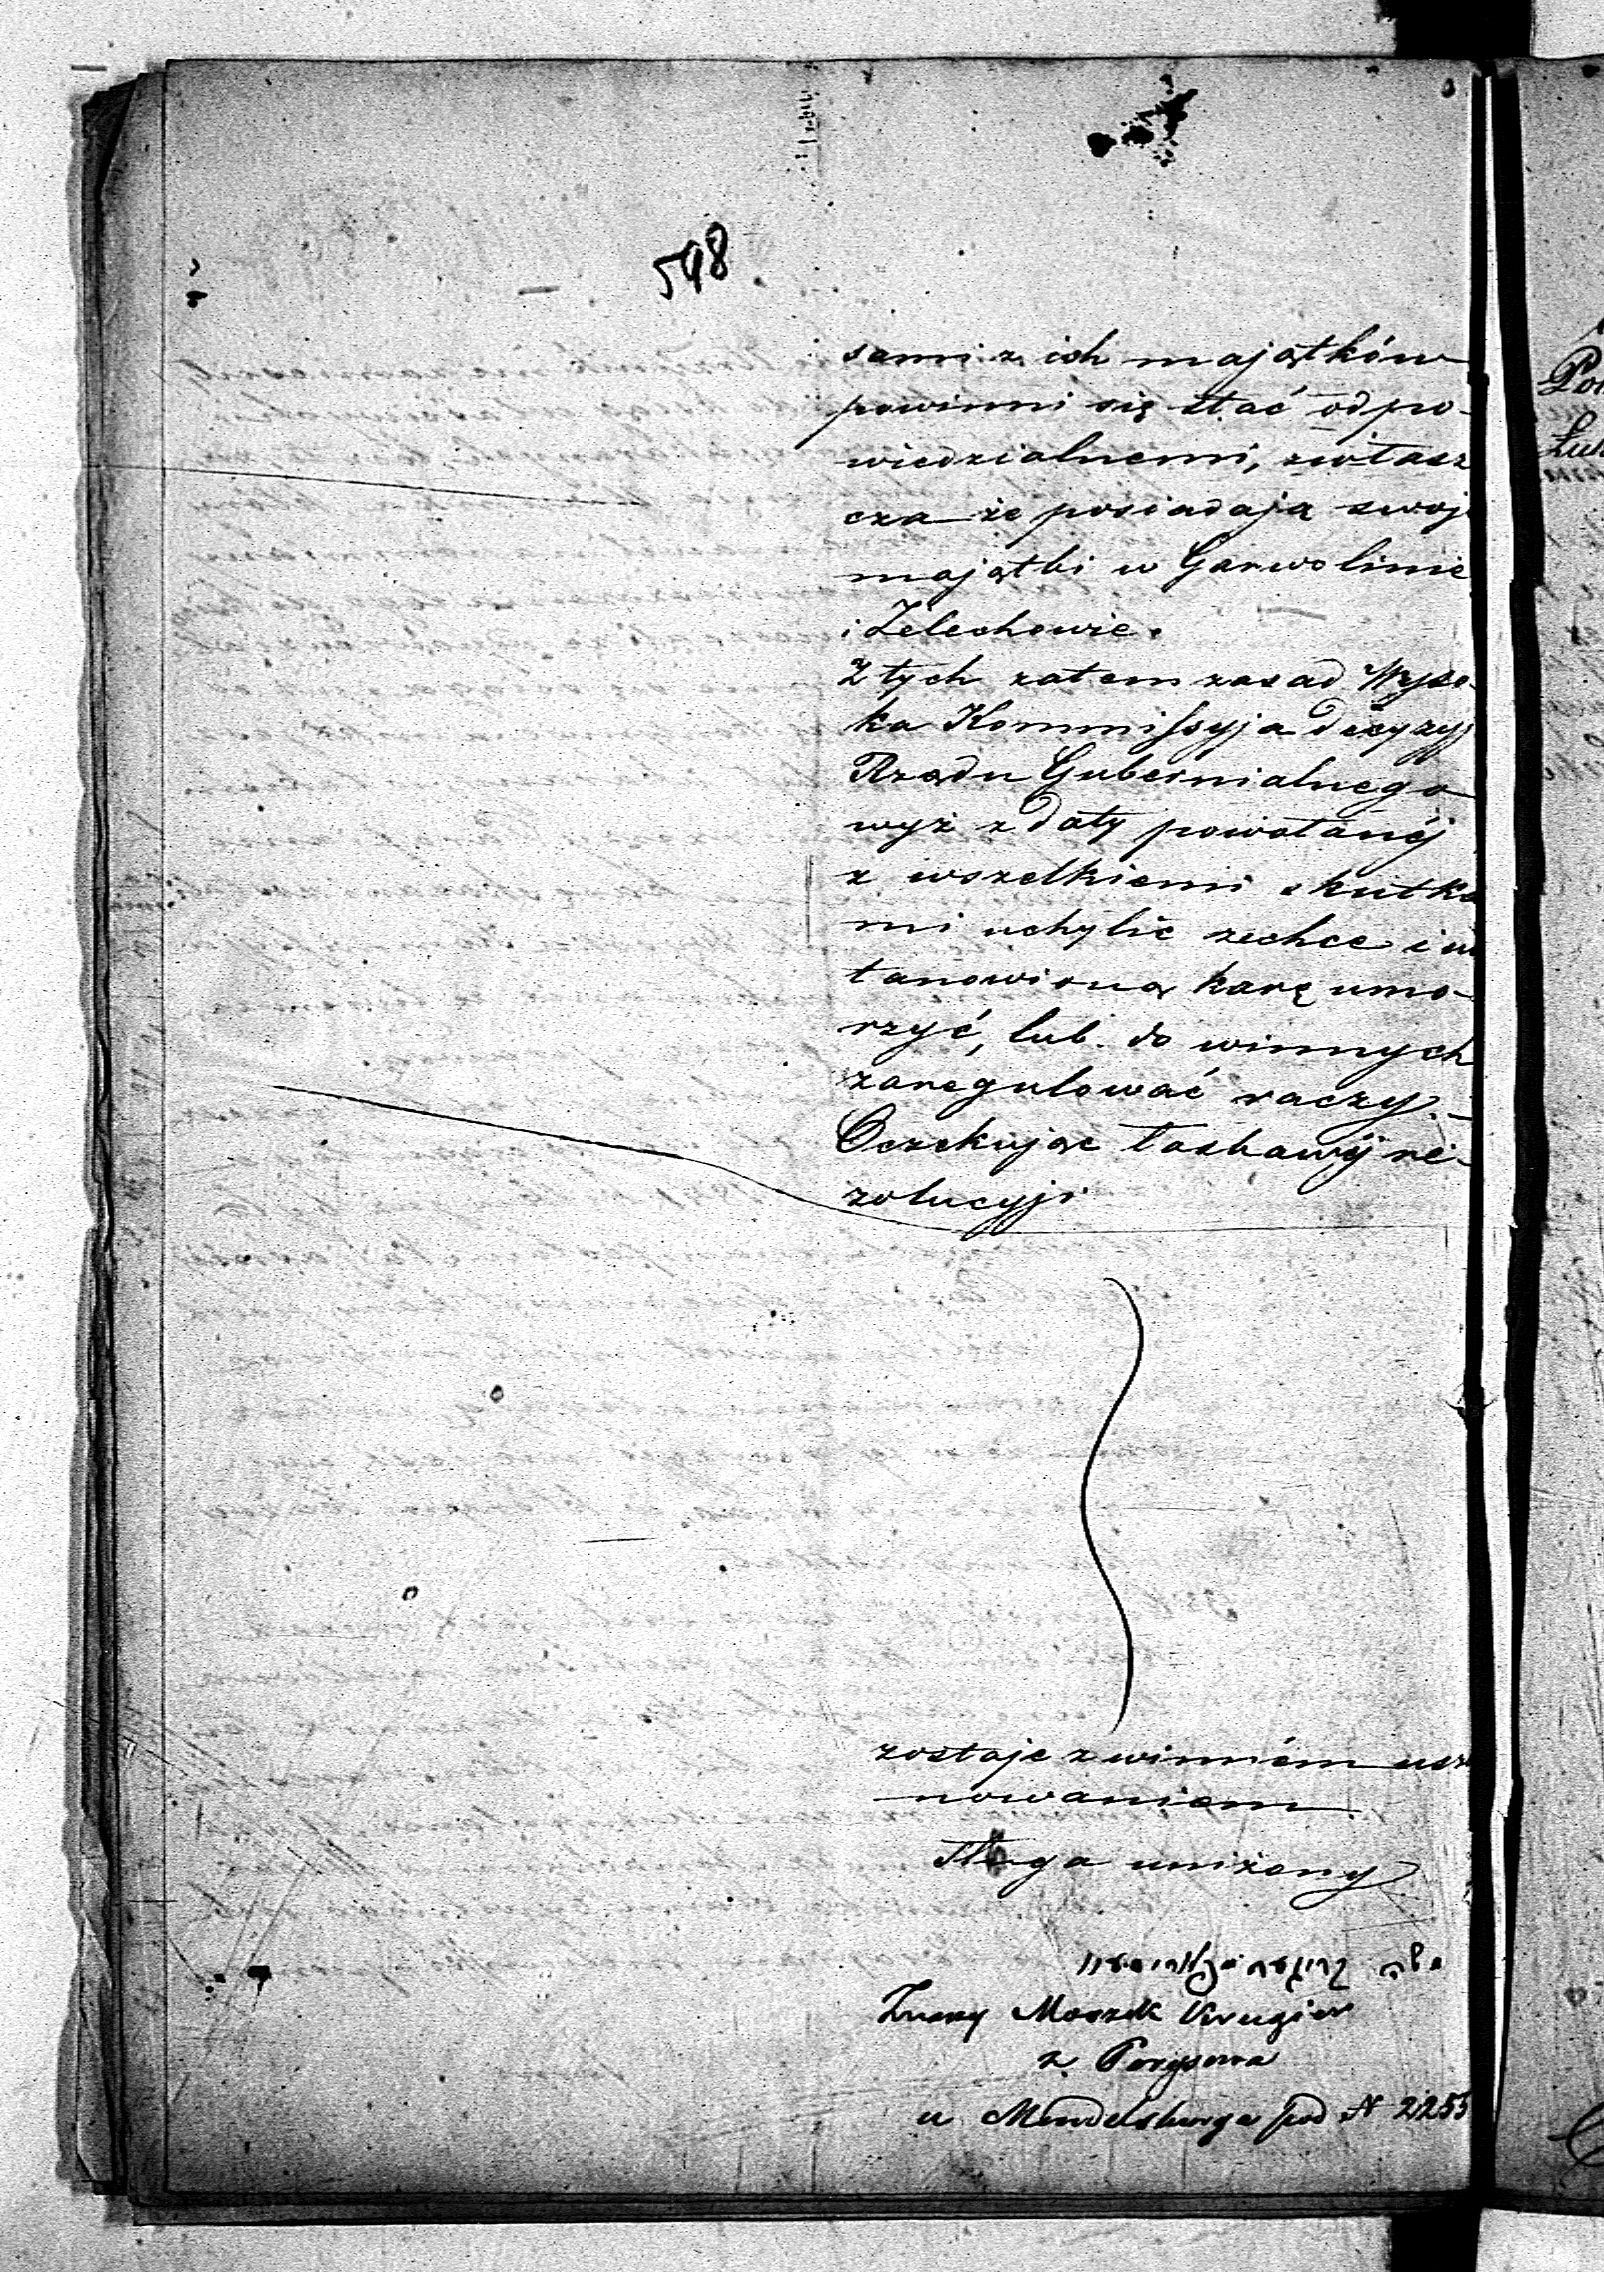 598
sami z ich majątków
powinni się stać odpo-
wiedzialnemi, zwłasz
cza że posiadają swoje
majątki w Garwolinie
i Zelechowie.
Z tych zatem zasad Wyso-
ka Kommissyja decyzyj
Rządu Gubernialnego
wyż z daty powołanéj
z wszelkiemi skutka
mi uchylić zechce i us
tanowioną karę umo-
rzyć, lub do winnych
zaregulować raczy.-
Oczekując łaskawéj re-
zolucyji
zostaje z winném usza
nowaniem
Sługa uniżony
משה קרוגער
Znaczy Moszek Krugier
z Parysowa
u Mendelsburga pod N 2255